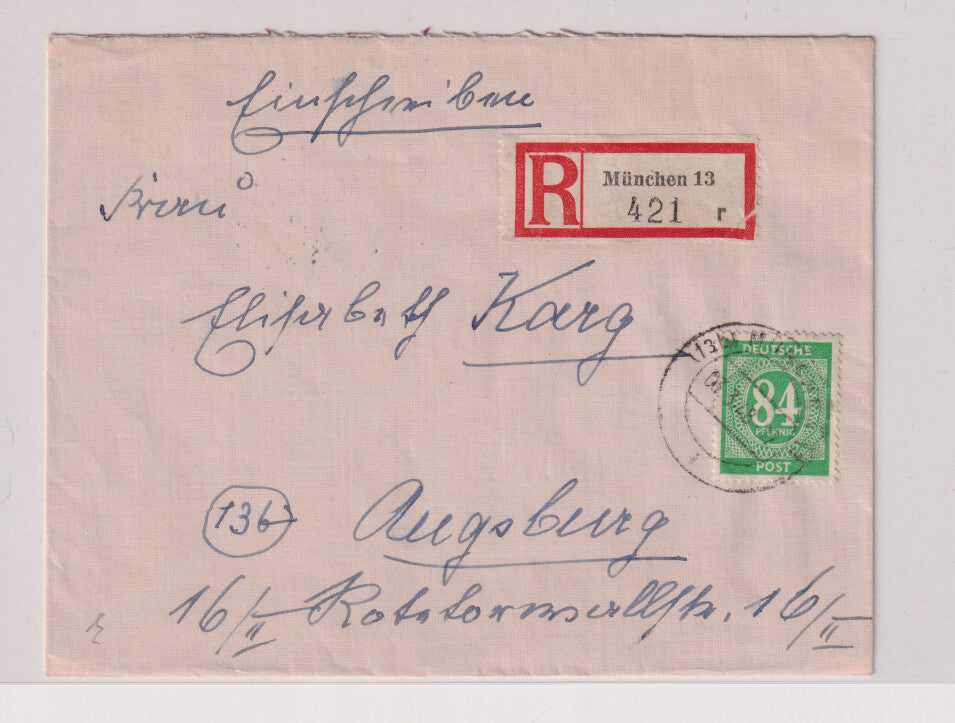 Einschreiben
R
München 13
421 r
Frau
Elisabeth Karg
DEUTSCHE
84
PFENNIG
POST
(13b)
13b
Augsburg
16/II Rotetorwallstr. 16/II